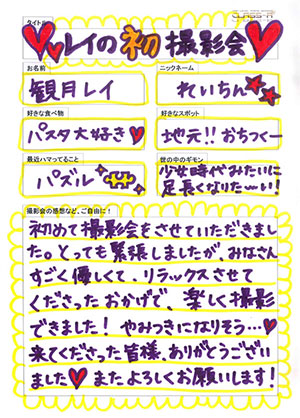 CLASS-A
タイトル
レイの初撮影会
お名前
ニックネーム
観月レイ
れいちん
好きな食べ物
好きなスポット
パスタ大好き
地元!! おちつくー
最近ハマってること
世の中のギモン
パズル
少女時代みたいに
足長くなりたーい!
撮影会の感想など、ご自由に!
初めて撮影会をさせていただきまし
た。とっても緊張しましたが、みなさん
すごく優しくて、リラックスさせて
くださったおかげで、楽しく撮影
できました! やみつきになりそう…
来てくださった皆様、ありがとうござい
ました またよろしくお願いします!